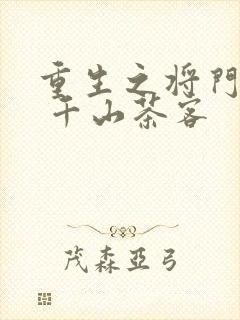 重生之将門
千山茶客
茂森亞弓